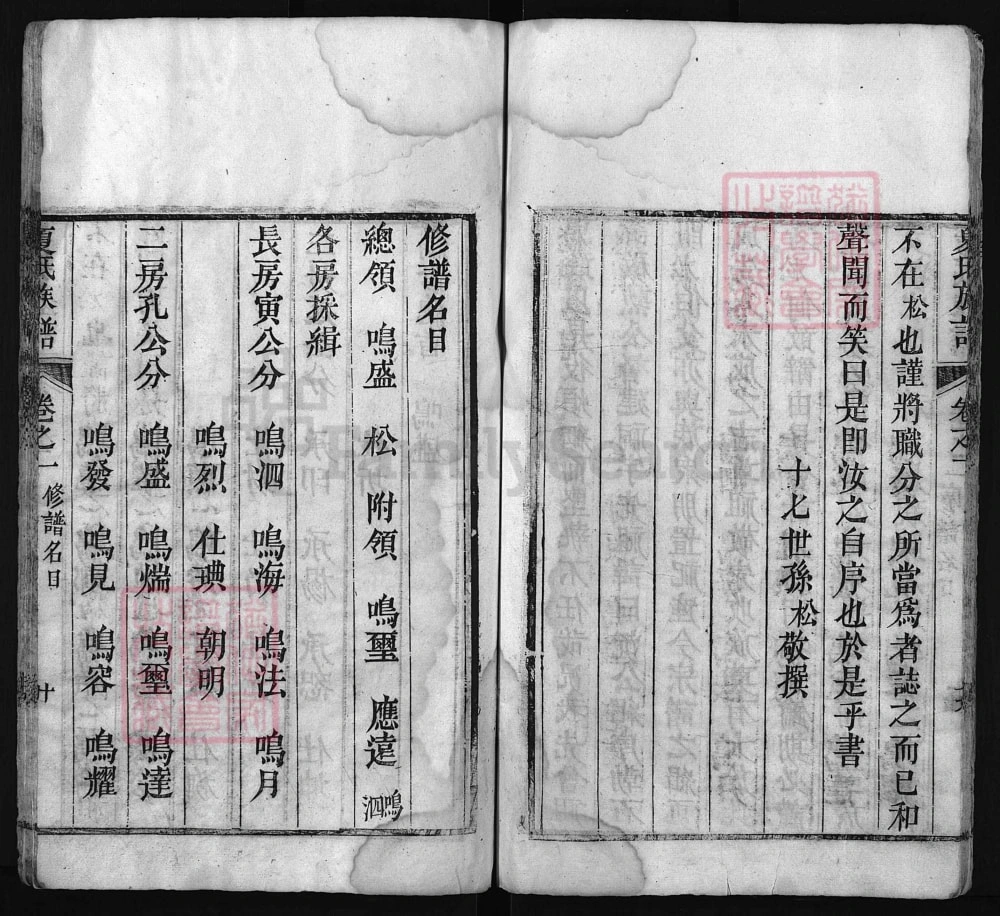 夏氏族譜 卷之一
不在松也謹將職分之所當爲者誌之而已和
聲聞而笑曰是即汝之自序也於是乎書
十七世孫松敬撰
修譜名目
總領 鳴盛 松 附領 鳴璽 應遠 鳴泗
各房採緝
長房寅公分 鳴泗 鳴海 鳴法 鳴月
鳴烈 仕琠 朝明
二房孔公分 鳴盛 鳴惴 鳴璽 鳴達
鳴發 鳴見 鳴容 鳴耀
夏氏族譜 卷之一 修譜名目 十